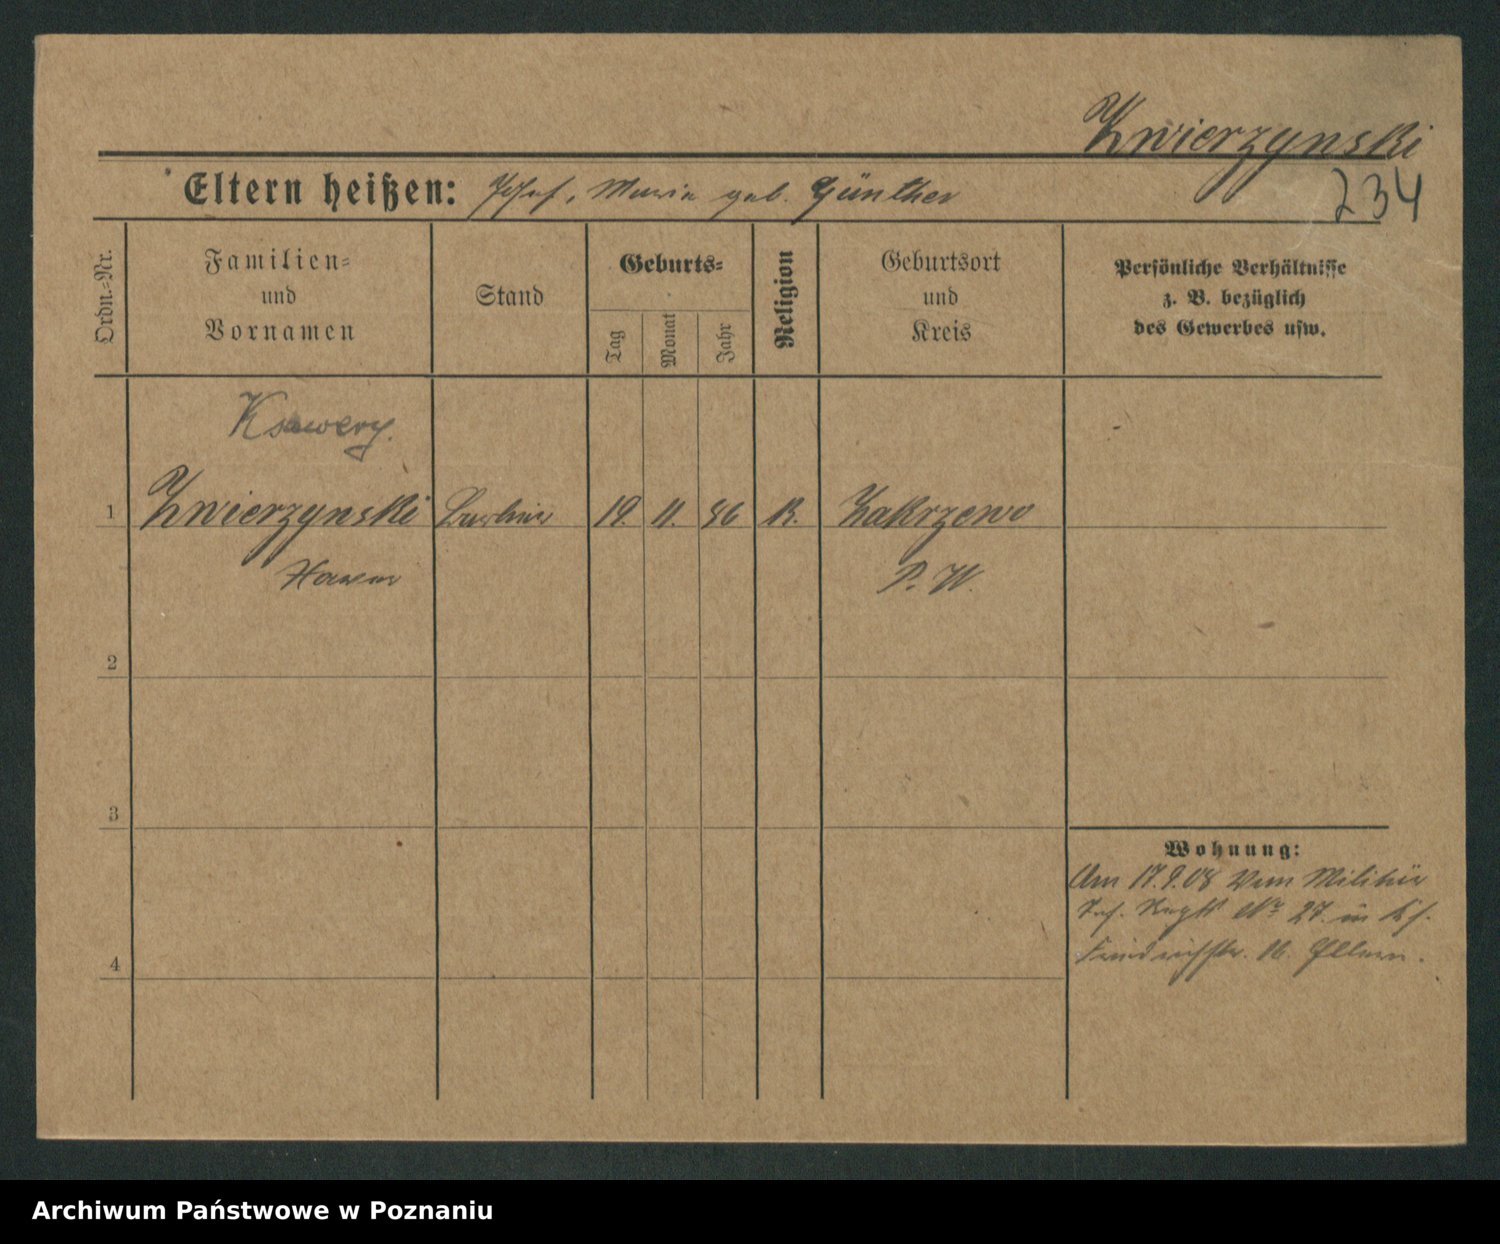 Zwierzynski
234
Eltern heißen: Josef, Marie geb. Günther
Ordn.-Nr.
Familien-
und
Vornamen
Stand
Geburts-
Tag
Monat
Jahr
Religion
Geburtsort
und
Kreis
Persönliche Verhältnisse
z. B. bezüglich
des Gewerbes usw.
Ksawery.
1 Zwierzynski Barbier 19. 11. 86 K. Zakrzewo
Xaver P. W.
2
3
4
Wohnung:
Am 17.9.08 vom Militär
Inf. Regt No 27. in
Friedrichstr. 16. Eltern.
Archiwum Państwowe w Poznaniu